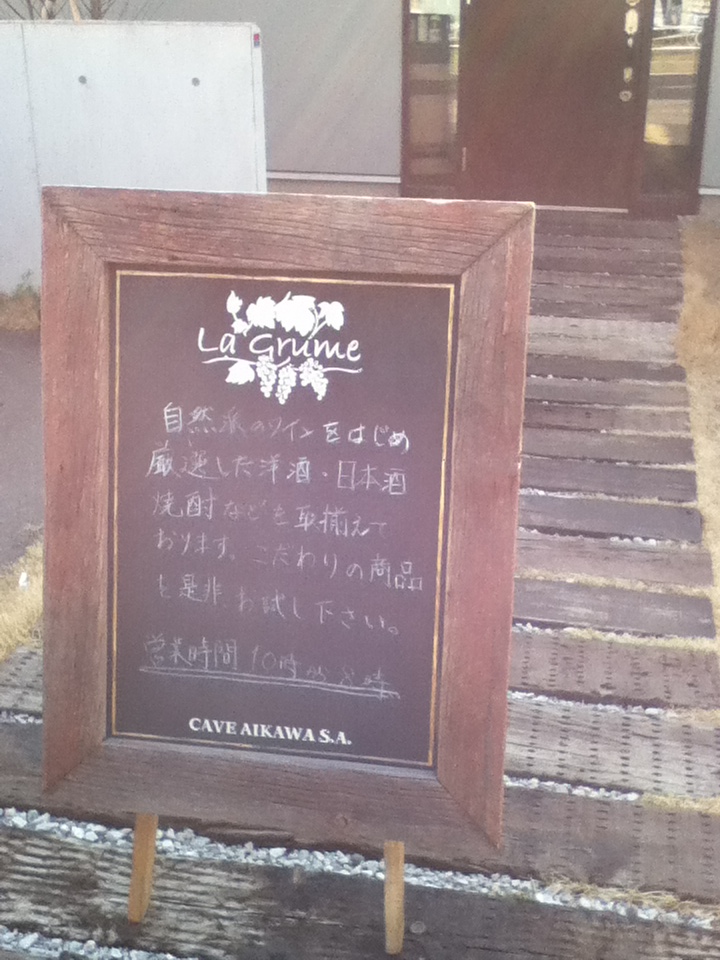 La Grume
自然派のワインをはじめ
厳選した洋酒・日本酒
焼酎などを取揃えて
おります。こだわりの商品
を是非お試し下さい。
営業時間 10時〜8時
CAVE AIKAWA S.A.